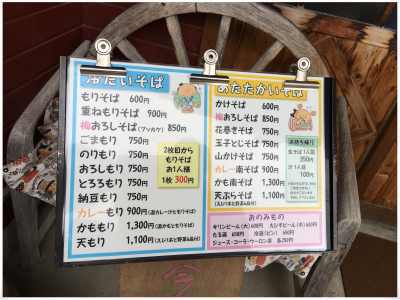 冷たいそば
もりそば 600円
重ねもりそば 900円
梅おろしそば(ブッカケ) 850円
ごまもり 750円
のりもり 750円
おろしもり 750円
とろろもり 750円
納豆もり 750円
カレーもり 900円
かももり 1,300円
天もり 1,100円
2枚目から
もりそば
お1人様
1枚 300円
あたたかいそば
かけそば 600円
梅おろしそば 850円
花巻きそば 750円
玉子とじそば 750円
山かけそば 750円
カレー南そば 900円
かも南そば 1,300円
天ぷらそば 1,100円
350円
100円
おのみもの
キリンビール(大)600円
ジュース・コーラ・ウーロン茶 各250円